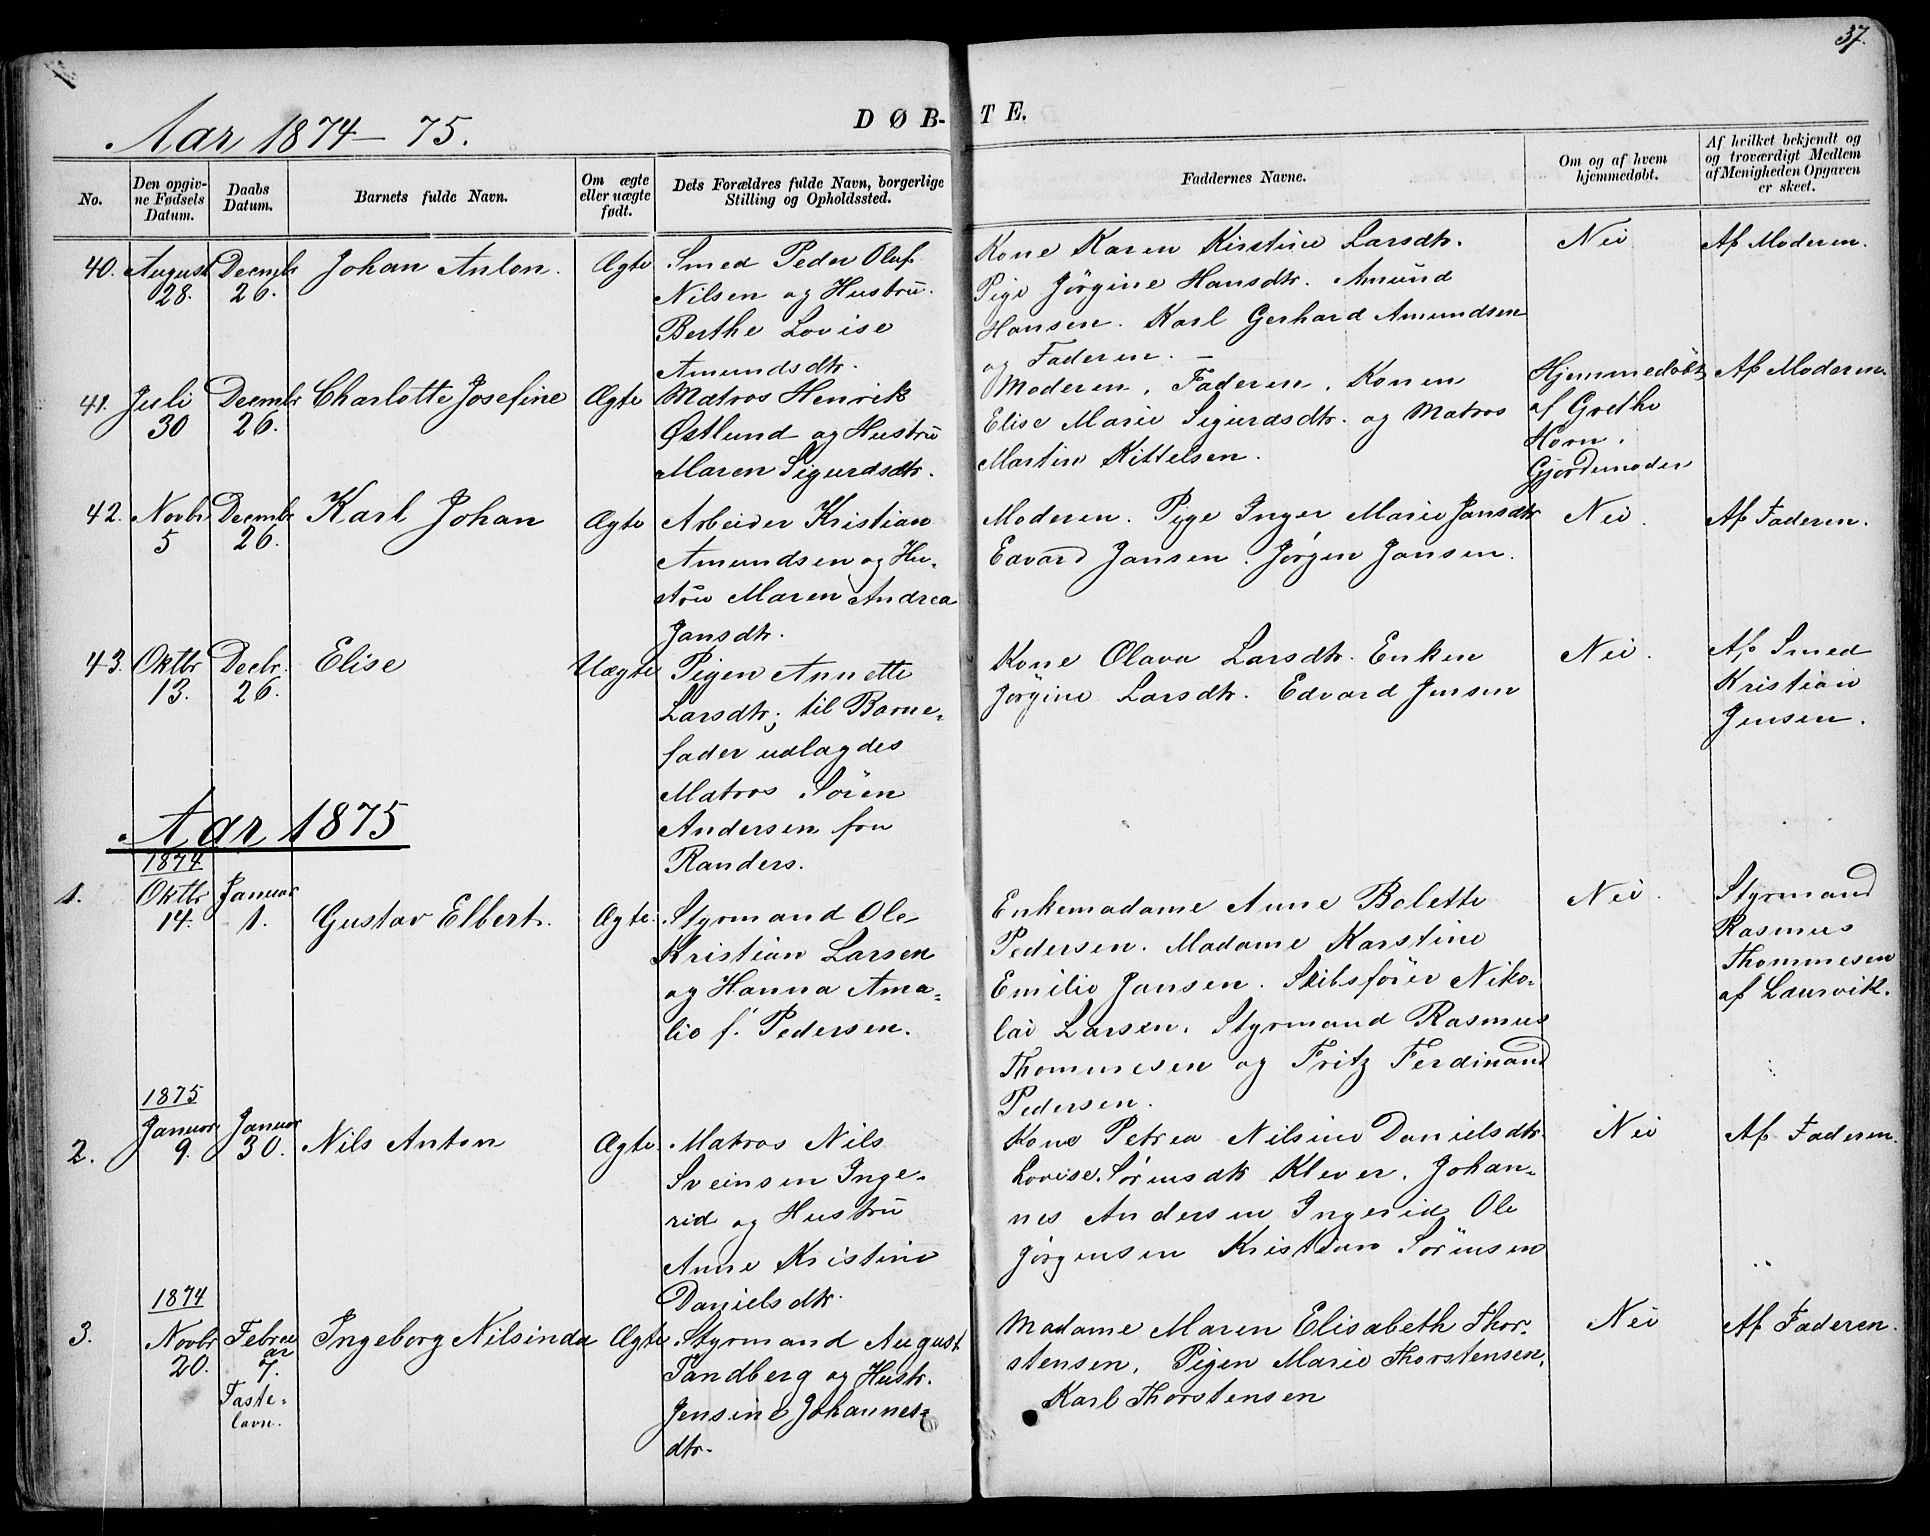 37.
Aar 1874–75.
DØB-TE.
No.
Den opgiv-
ne Fødsels
Datum.
Daabs
Datum.
Barnets fulde Navn.
Om ægte
eller uægte
født.
Dets Forældres fulde Navn, borgerlige
Stilling og Opholdssted.
Faddernes Navne.
Om og af hvem
hjemmedøbt.
Af hvilket bekjendt og
og troværdigt Medlem
af Menigheden Opgaven
er skeet.
40.
August
28.
Decmbr
26.
Johan Anton.
Ægte
Smed Peder Oluf
Nilsen og Hustru.
Berthe Lovise
Amundsdtr.
Kone Karen Kirstine Larsdtr.
Pige Jørgine Hansdtr. Amund
Hansen. Karl Gerhard Amundsen
og Faderen. –
Nei
Af Moderen.
41.
Juli
30
Decmbr
26.
Charlotte Josefine
Ægte
Matros Henrik
Østlund og Hustru
Maren Sigurdsdtr.
Moderen, Faderen, Konen
Elise Marie Sigurdsdtr. og Matros
Martin Kittelsen.
Hjemmedøbt
af Grethe
Horn,
Gjordemoder
Af Moderen.
42.
Novbr
5
Decmbr
26.
Karl Johan
Ægte
Arbeider Kristian
Amundsen og Hu-
stru Maren Andrea
Jansdtr.
Moderen. Pige Inger Marie Jansdtr
Edvard Jansen. Jørgen Jansen.
Nei.
Af Faderen.
43.
Oktbr
13.
Decbr.
26.
Elise
Uægte
Pigen Annette
Larsdtr; til Barne-
fader udlagdes
Matros Søren
Andersen fra
Randers.
Kone Olava Larsdtr. Enken
Jørgine Larsdtr. Edvard Jensen
Nei.
Af Smed
Kristian
Jensen.
Aar 1875
1.
1874
Oktbr
14.
Januar
1.
Gustav Elbert.
Ægte.
Styrmand Ole
Kristian Larsen
og Hanna Ama-
lie f. Pedersen.
Enkemadame Anne Bolette
Pedersen. Madame Karstine
Emilie Jansen. Skibsfører Niko-
lai Larsen. Styrmand Rasmus
Thommesen og Fritz Ferdinand
Pedersen.
Nei.
Styrmand
Rasmus
Thommesen
af Laurvik.
2.
1875
Januar
9.
Januar
30.
Nils Anton
Ægte
Matros Nils
Sveinsen Inge-
rid og Hustru
Anne Kristine
Danielsdtr.
Kone Petrea Nilsine Danielsdtr.
Lovise Sørensdtr Klever. Johan-
nes Andersen Ingerid Ole
Jørgensen Kristian Sørensen
Nei
Af Faderen.
3.
1874
Novbr
20.
Febru
ar
7.
Faste-
lavn.
Ingeborg Nilsinda
Ægte
Styrmand August
Tandberg og Hustr.
Jensine Johannes-
dtr.
Madame Maren Elisabeth Thor-
stensen, Pigen Marie Thorstensen,
Karl Thorstensen
Nei
Af Faderen.